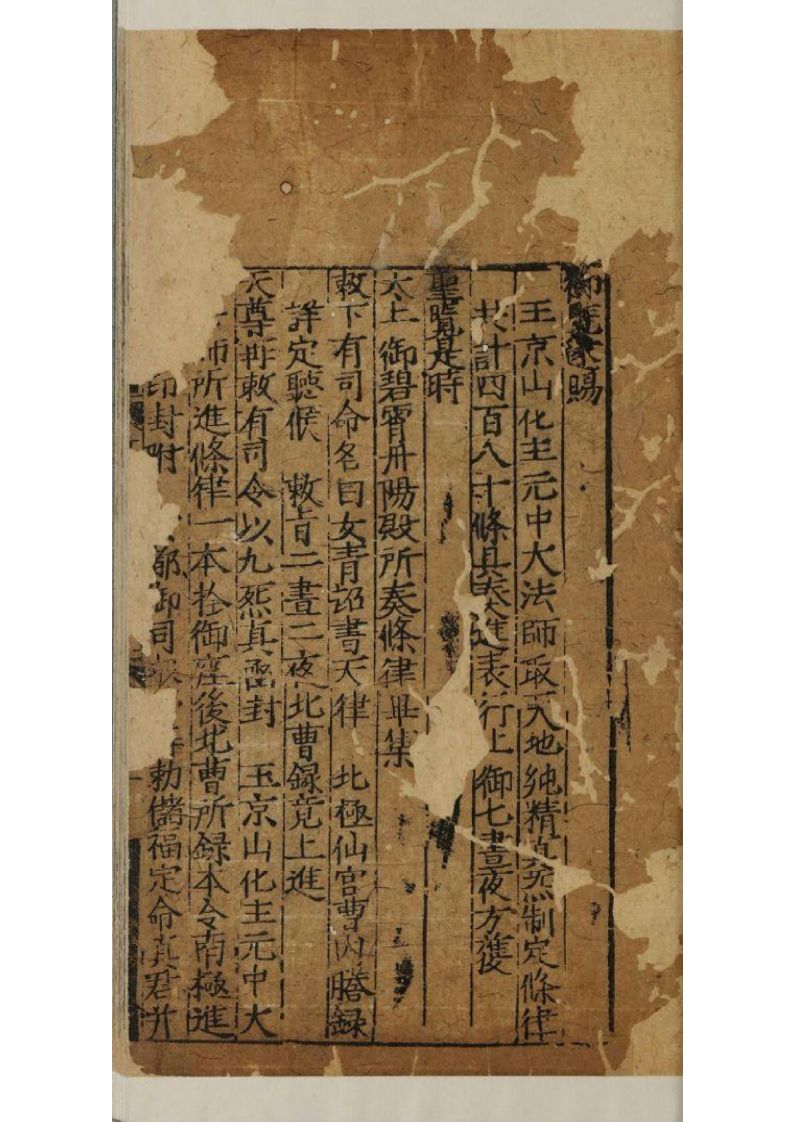 御覽蒙賜
玉京山化主元中大法師取天地純精真炁制定條律
共計四百八十條具表進表行上御七晝夜方獲
聖覽是時
太上御碧霄丹陽殿所奏條律畢集
敕下有司命名曰女青詔書天律　北極仙宮曹內謄録
詳定聽候　敕旨二晝二夜北曹録竟上進
天尊再敕有司令以九炁真密封　玉京山化主元中大
師所進條律一本於御座後北曹所録本令南極進
印封附　御司　勅儲福定命真君并